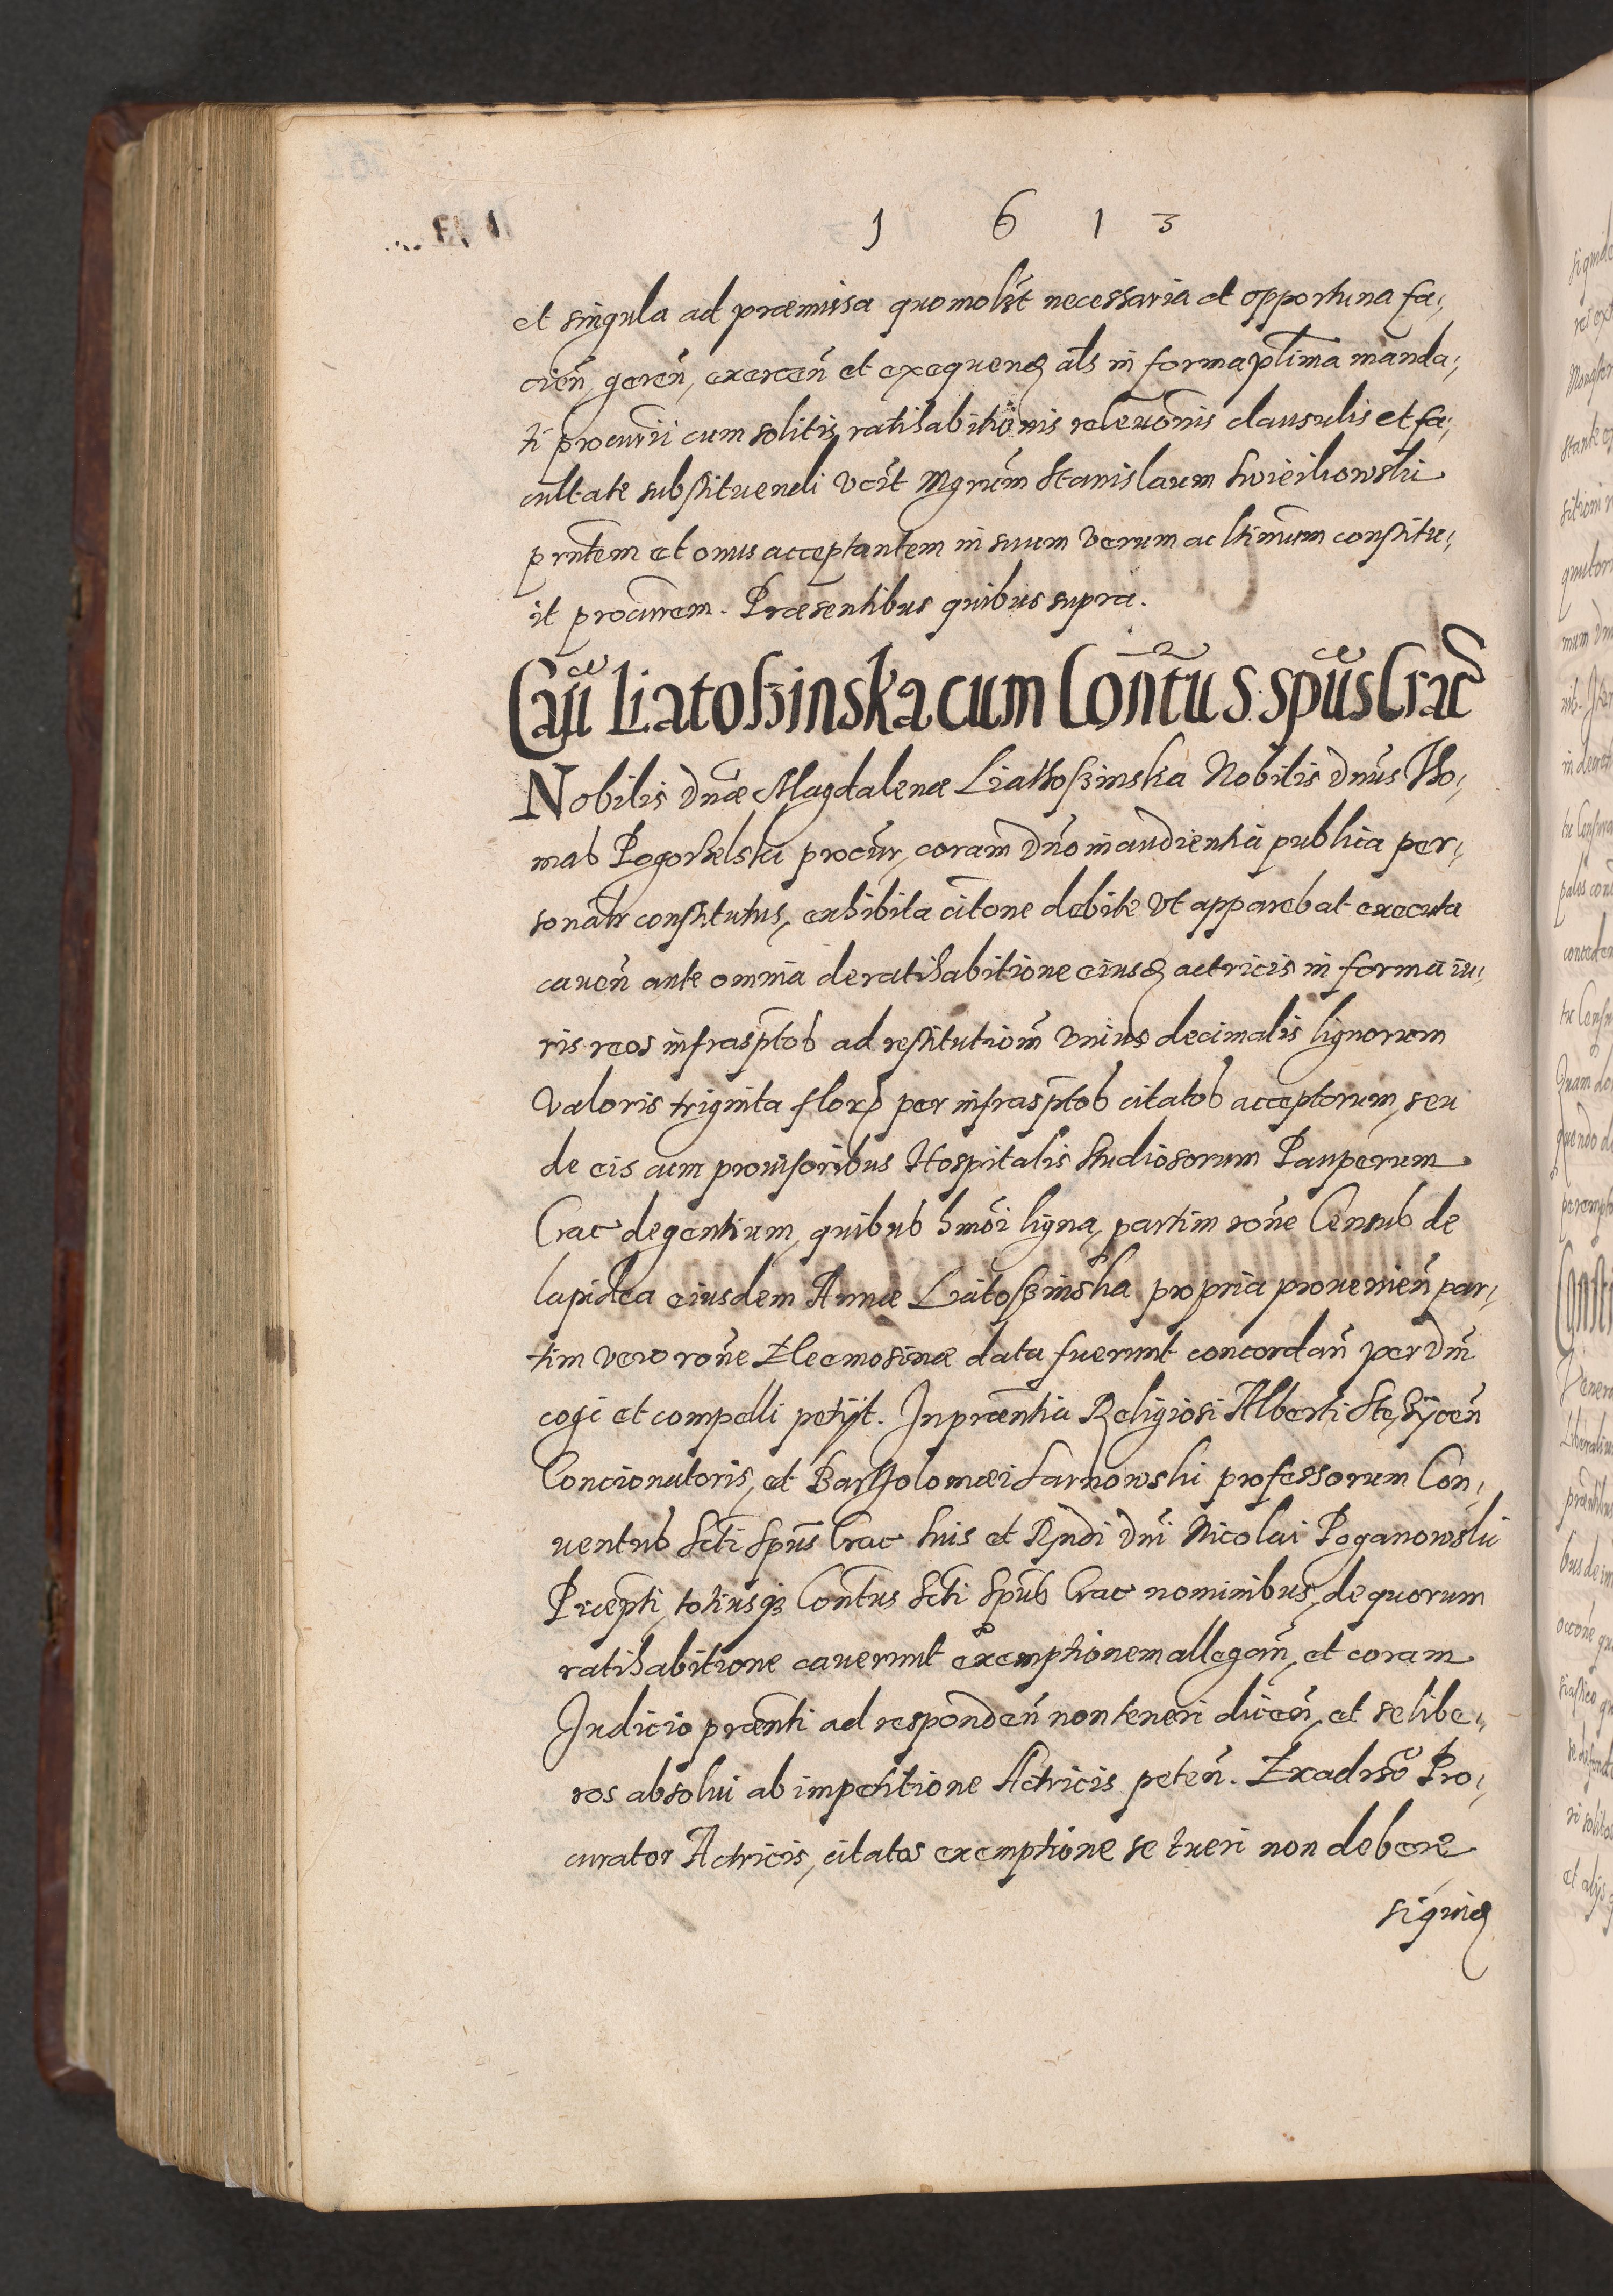 1 6 1 3
et singula ad præmissa quomolt̃ necessaria et opportuna fa,
cień, gereń, exerceń et exequenḍ als in forma ptima manda,
ti procurii cum solitis ratihabitionis releuõnis clausulis et fa,
cultate substituendi vcit Mgnm̃ Stanislaum
prñtem et onus acceptantem in suum verum ac ltimum constitu,
it procurem. Præsentibus quibus supra.
Cau Liatoßinska cum Contus S. spus Crac
Nobilis dnæ Magdalenæ Liathoßinska Nobilis dnus Tho,
mas Pogorzelski procur, coram dno in audientia publica per,
sonalr constitutus, exhibita citone debite vt apparebat executa
caueń ante omnia de ratihabitione eiusḍ actricis in forma iu,
ris reos infrasptos ad restitutiom̃ vnius decimalis lignorum
valoris triginta flor per infrasptos citatos acceptorum, seu
de eis cum prouisoribus Hospitalis Studiosorum Pauperum
Crac degentium, quibus hmoi ligna, partim rone Census de
lapidea eiusdem Annæ Liatoßinska propria prouenień par,
tim vero rone Eleemosinæ data fuerunt concordań per dm̃
cogi et compelli petijt. In præntia Religiosi Alberti
Concionatoris, et Bartholomæi Tarnowski professorum Con,
uentus Scti Spus Crac suis et Rndi dni Nicolai Poganowski
Præpti, totiusq3 Contus Scti Spus Crac nominibus, de quorum
ratihabitione cauerunt exemptionem allegań, et coram
Iudicio prænti ad respondeń non teneri diceń, et se libe,
ros absolui ab impetitione Actricis peteń. Ex aduso Pro,
curator Actricis, citatos exemptione se tueri non debere
siquiḍ